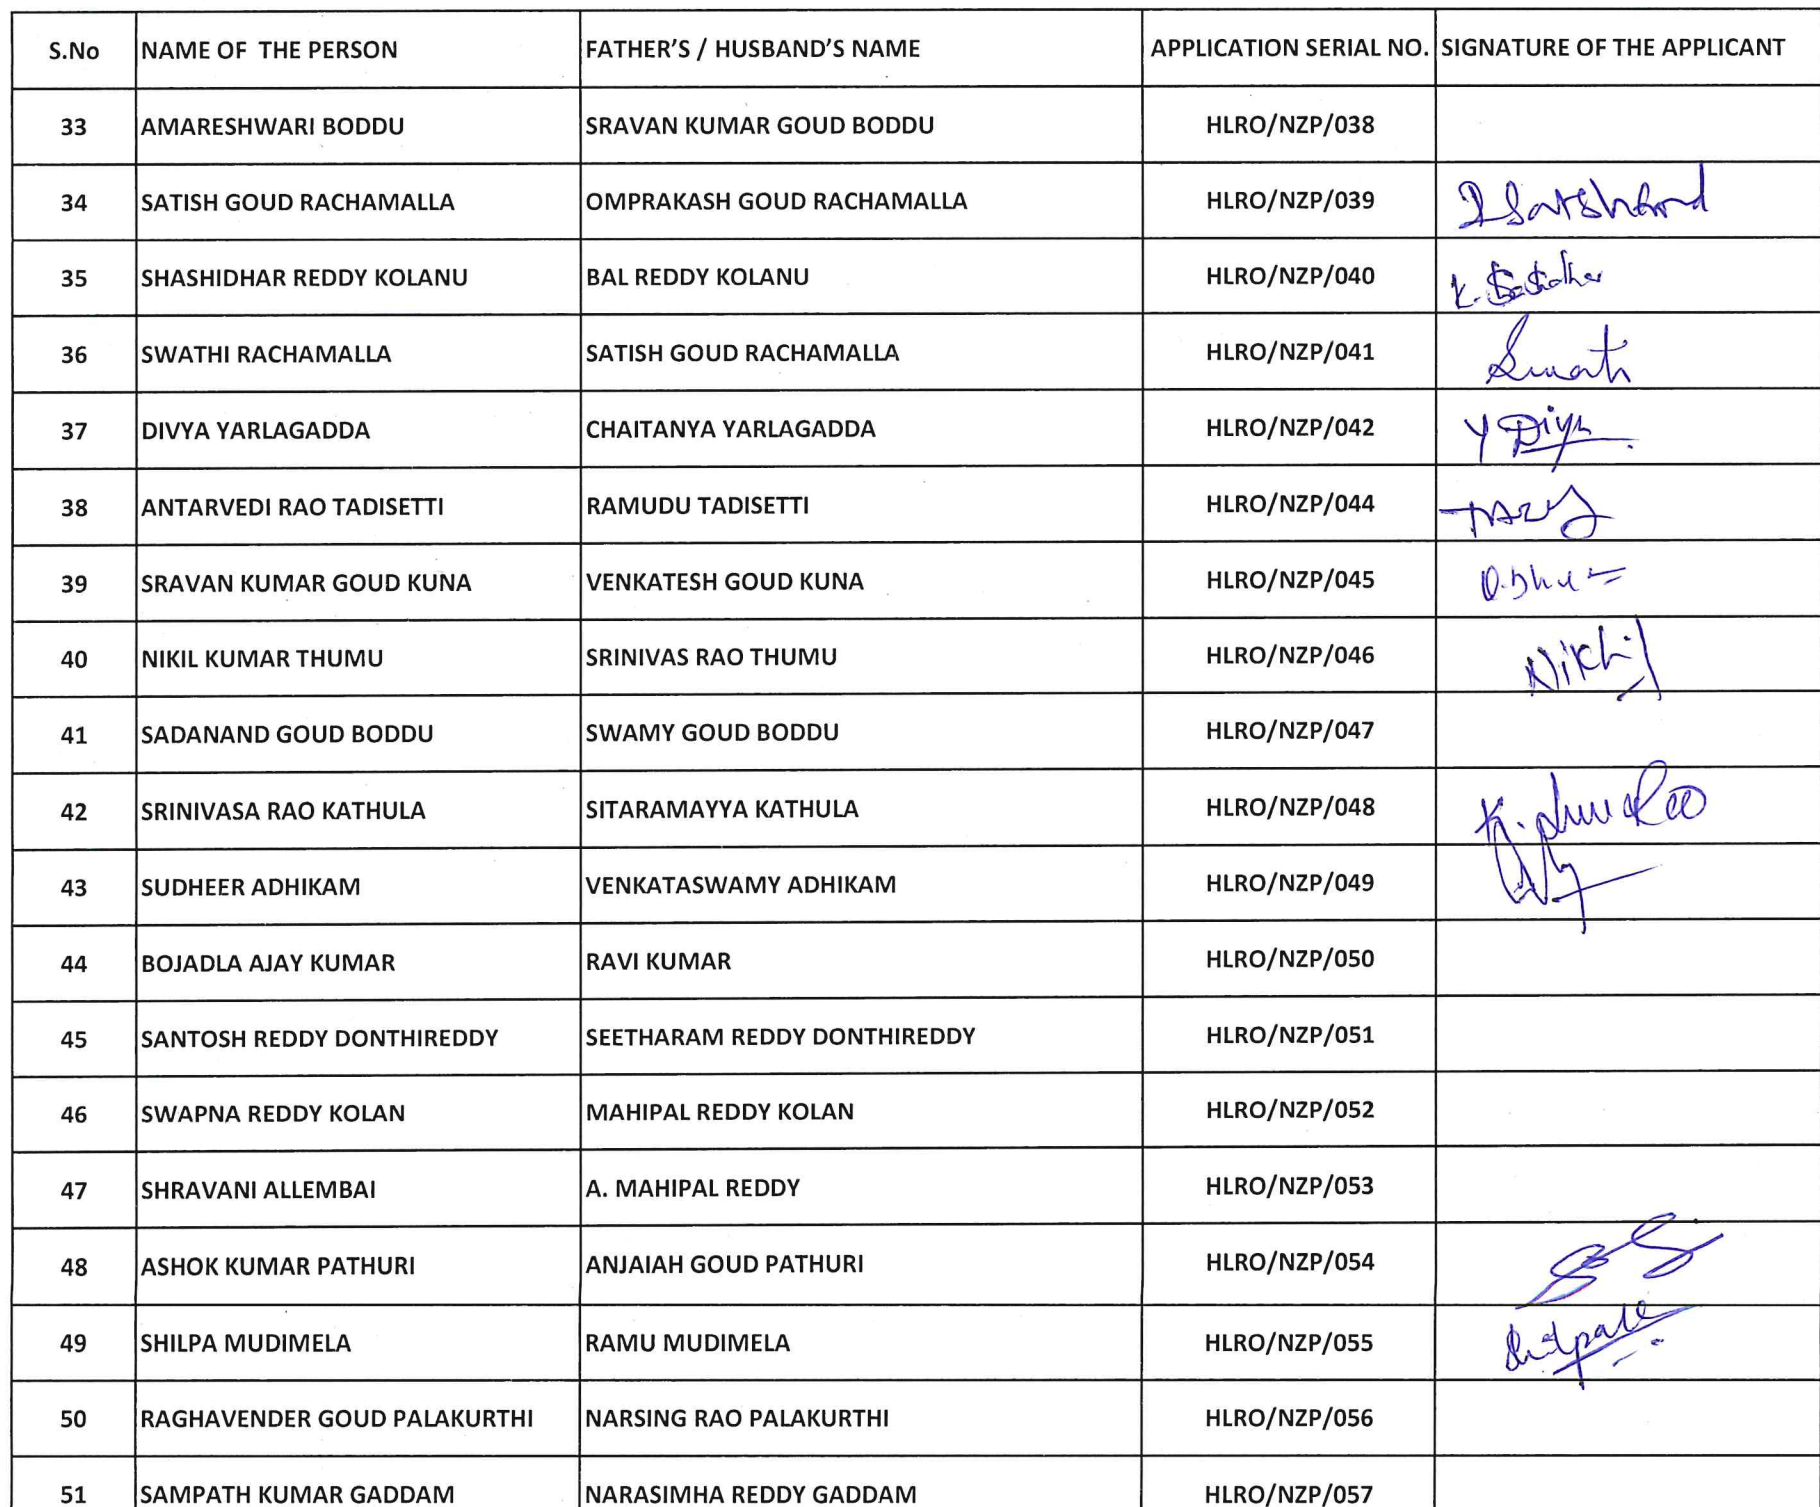 S.No NAME OF THE PERSON FATHER'S / HUSBAND'S NAME APPLICATION SERIAL NO. SIGNATURE OF THE APPLICANT
33 AMARESHWARI BODDU SRAVAN KUMAR GOUD BODDU HLRO/NZP/038
34 SATISH GOUD RACHAMALLA OMPRAKASH GOUD RACHAMALLA HLRO/NZP/039
35 SHASHIDHAR REDDY KOLANU BAL REDDY KOLANU HLRO/NZP/040
36 SWATHI RACHAMALLA SATISH GOUD RACHAMALLA HLRO/NZP/041
37 DIVYA YARLAGADDA CHAITANYA YARLAGADDA HLRO/NZP/042
38 ANTARVEDI RAO TADISETTI RAMUDU TADISETTI HLRO/NZP/044
39 SRAVAN KUMAR GOUD KUNA VENKATESH GOUD KUNA HLRO/NZP/045
40 NIKIL KUMAR THUMU SRINIVAS RAO THUMU HLRO/NZP/046 Nikhil
41 SADANAND GOUD BODDU SWAMY GOUD BODDU HLRO/NZP/047
42 SRINIVASA RAO KATHULA SITARAMAYYA KATHULA HLRO/NZP/048
43 SUDHEER ADHIKAM VENKATASWAMY ADHIKAM HLRO/NZP/049
44 BOJADLA AJAY KUMAR RAVI KUMAR HLRO/NZP/050
45 SANTOSH REDDY DONTHIREDDY SEETHARAM REDDY DONTHIREDDY HLRO/NZP/051
46 SWAPNA REDDY KOLAN MAHIPAL REDDY KOLAN HLRO/NZP/052
47 SHRAVANI ALLEMBAI A. MAHIPAL REDDY HLRO/NZP/053
48 ASHOK KUMAR PATHURI ANJAIAH GOUD PATHURI HLRO/NZP/054
49 SHILPA MUDIMELA RAMU MUDIMELA HLRO/NZP/055
50 RAGHAVENDER GOUD PALAKURTHI NARSING RAO PALAKURTHI HLRO/NZP/056
51 SAMPATH KUMAR GADDAM NARASIMHA REDDY GADDAM HLRO/NZP/057